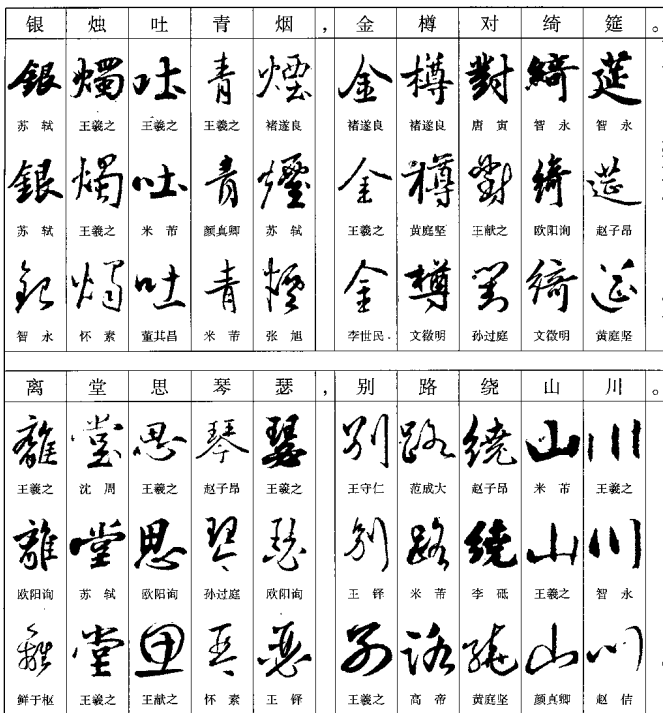 银 烛 吐 青 烟 ， 金 樽 对 绮 筵 。
銀 燭 吐 青 煙 金 樽 對 綺 筵
苏轼 王羲之 王羲之 王羲之 褚遂良 褚遂良 褚遂良 唐寅 智永 智永
銀 燭 吐 青 煙 金 樽 對 綺 筵
苏轼 王羲之 米芾 颜真卿 苏轼 王羲之 黄庭坚 王献之 欧阳询 赵子昂
銀 燭 吐 青 煙 金 樽 對 綺 筵
智永 怀素 董其昌 米芾 张旭 李世民 文徵明 孙过庭 文徵明 黄庭坚
离 堂 思 琴 瑟 ， 别 路 绕 山 川 。
離 堂 思 琴 瑟 别 路 繞 山 川
王羲之 沈周 王羲之 赵子昂 王羲之 王守仁 范成大 赵子昂 米芾 王羲之
離 堂 思 琴 瑟 别 路 繞 山 川
欧阳询 苏轼 欧阳询 孙过庭 欧阳询 王铎 米芾 李砥 王羲之 智永
離 堂 思 琴 瑟 别 路 繞 山 川
鲜于枢 王羲之 王献之 怀素 王铎 王羲之 高帝 黄庭坚 颜真卿 赵佶